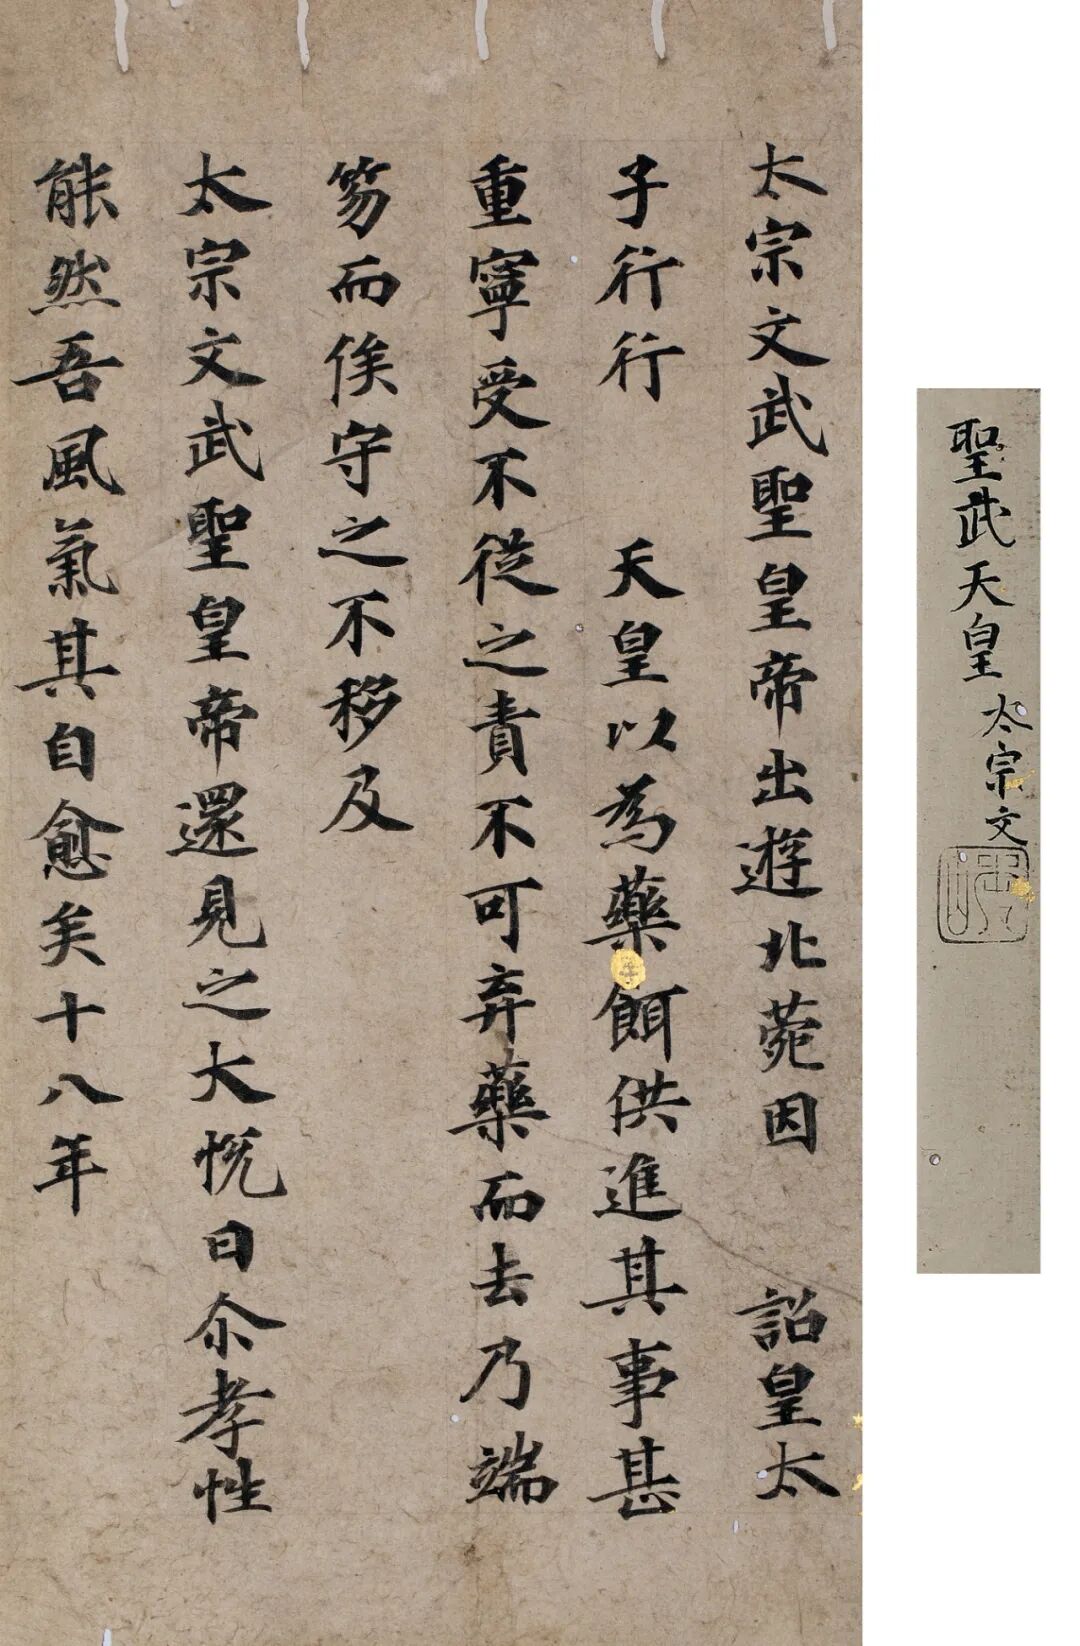 太宗文武聖皇帝出遊北菀因　詔皇太
子行行　天皇以為藥餌供進其事甚
重寧受不從之責不可弃藥而去乃端
笏而俟守之不移及
太宗文武聖皇帝還見之大恱曰尒孝性
能然吾風氣其自愈矣十八年
聖武天皇 太宗文